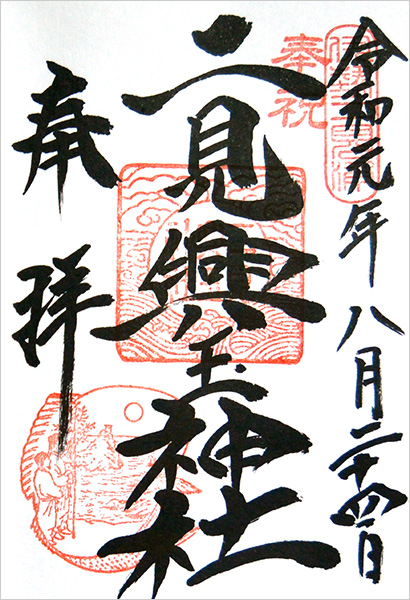 令和元年八月二十四日
奉祝
二見興玉神社
奉拝